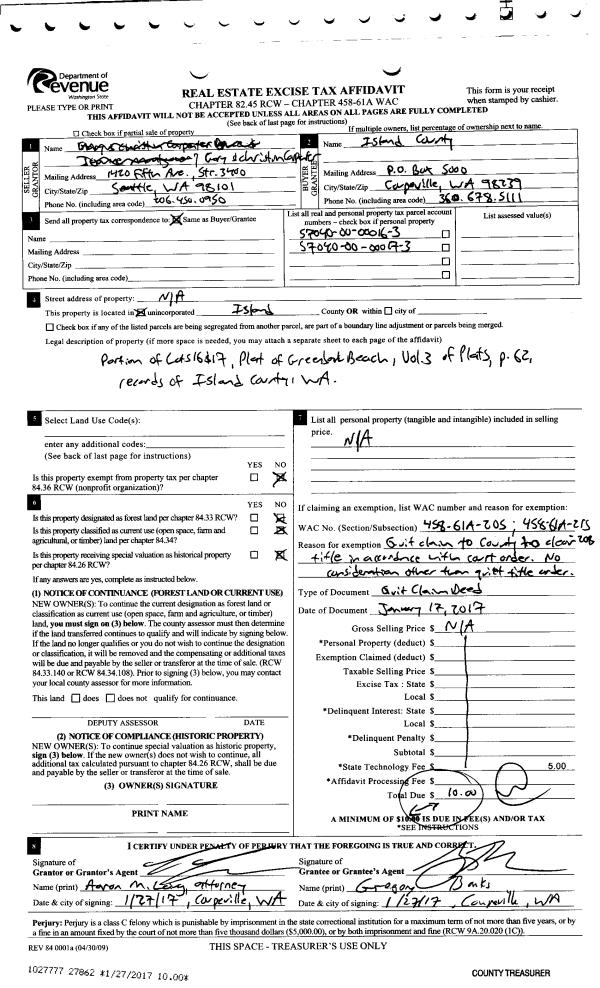 Department of
Revenue
Washington State
PLEASE TYPE OR PRINT
REAL ESTATE EXCISE TAX AFFIDAVIT
CHAPTER 82.45 RCW – CHAPTER 458-61A WAC
This form is your receipt
when stamped by cashier.
THIS AFFIDAVIT WILL NOT BE ACCEPTED UNLESS ALL AREAS ON ALL PAGES ARE FULLY COMPLETED
(See back of last page for instructions)
☐ Check box if partial sale of property
If multiple owners, list percentage of ownership next to name.
1 Name
Gary & Christin Carpenter
SELLER
GRANTOR
Mailing Address 1420 Fifth Ave., Str. 3400
City/State/Zip Seattle, WA 98101
Phone No. (including area code) 206.450.0950
2 Name Island County
BUYER
GRANTEE
Mailing Address P.O. Box 5000
City/State/Zip Coupeville, WA 98239
Phone No. (including area code) 360.678.5111
3 Send all property tax correspondence to: ☒ Same as Buyer/Grantee
Name
Mailing Address
City/State/Zip
Phone No. (including area code)
List all real and personal property tax parcel account
numbers – check box if personal property
S7040-00-00016-3 ☐
S7040-00-00017-3 ☐
☐
☐
List assessed value(s)
4 Street address of property: N/A
This property is located in ☒ unincorporated Island County OR within ☐ city of
☐ Check box if any of the listed parcels are being segregated from another parcel, are part of a boundary line adjustment or parcels being merged.
Legal description of property (if more space is needed, you may attach a separate sheet to each page of the affidavit)
Portion of Lots 16 & 17, Plat of Beach, Vol. 3 of Plats, p. 62,
records of Island County, WA.
5 Select Land Use Code(s):
enter any additional codes:
(See back of last page for instructions)
YES NO
Is this property exempt from property tax per chapter
84.36 RCW (nonprofit organization)? ☐ ☒
6 YES NO
Is this property designated as forest land per chapter 84.33 RCW? ☐ ☒
Is this property classified as current use (open space, farm and
agricultural, or timber) land per chapter 84.34? ☐ ☒
Is this property receiving special valuation as historical property
per chapter 84.26 RCW? ☐ ☒
If any answers are yes, complete as instructed below.
(1) NOTICE OF CONTINUANCE (FOREST LAND OR CURRENT USE)
NEW OWNER(S): To continue the current designation as forest land or
classification as current use (open space, farm and agriculture, or timber)
land, you must sign on (3) below. The county assessor must then determine
if the land transferred continues to qualify and will indicate by signing below.
If the land no longer qualifies or you do not wish to continue the designation
or classification, it will be removed and the compensating or additional taxes
will be due and payable by the seller or transferor at the time of sale. (RCW
84.33.140 or RCW 84.34.108). Prior to signing (3) below, you may contact
your local county assessor for more information.
This land ☐ does ☐ does not qualify for continuance.
DEPUTY ASSESSOR DATE
(2) NOTICE OF COMPLIANCE (HISTORIC PROPERTY)
NEW OWNER(S): To continue special valuation as historic property,
sign (3) below. If the new owner(s) does not wish to continue, all
additional tax calculated pursuant to chapter 84.26 RCW, shall be due
and payable by the seller or transferor at the time of sale.
(3) OWNER(S) SIGNATURE
PRINT NAME
7 List all personal property (tangible and intangible) included in selling
price.
N/A
If claiming an exemption, list WAC number and reason for exemption:
WAC No. (Section/Subsection) 458-61A-205; 458-61A-215
208
Reason for exemption Quit claim to County to clear
title in accordance with court order. No
consideration other than quiet title order.
Type of Document Quit Claim Deed
Date of Document January 17, 2017
Gross Selling Price $ N/A
*Personal Property (deduct) $
Exemption Claimed (deduct) $
Taxable Selling Price $
Excise Tax : State $
Local $
*Delinquent Interest: State $
Local $
*Delinquent Penalty $
Subtotal $
*State Technology Fee $ 5.00
*Affidavit Processing Fee $
Total Due $ 10.00
A MINIMUM OF $10.00 IS DUE IN FEE(S) AND/OR TAX
*SEE INSTRUCTIONS
8 I CERTIFY UNDER PENALTY OF PERJURY THAT THE FOREGOING IS TRUE AND CORRECT.
Signature of
Grantor or Grantor's Agent
Name (print) Aaron M. attorney
Date & city of signing: 1/27/17, Coupeville, WA
Signature of
Grantee or Grantee's Agent
Name (print) Gregory Banks
Date & city of signing: 1/27/17, Coupeville, WA
Perjury: Perjury is a class C felony which is punishable by imprisonment in the state correctional institution for a maximum term of not more than five years, or by
a fine in an amount fixed by the court of not more than five thousand dollars ($5,000.00), or by both imprisonment and fine (RCW 9A.20.020 (1C)).
REV 84 0001a (04/30/09)
THIS SPACE - TREASURER'S USE ONLY
COUNTY TREASURER
1027777 27862 *1/27/2017 10.00*